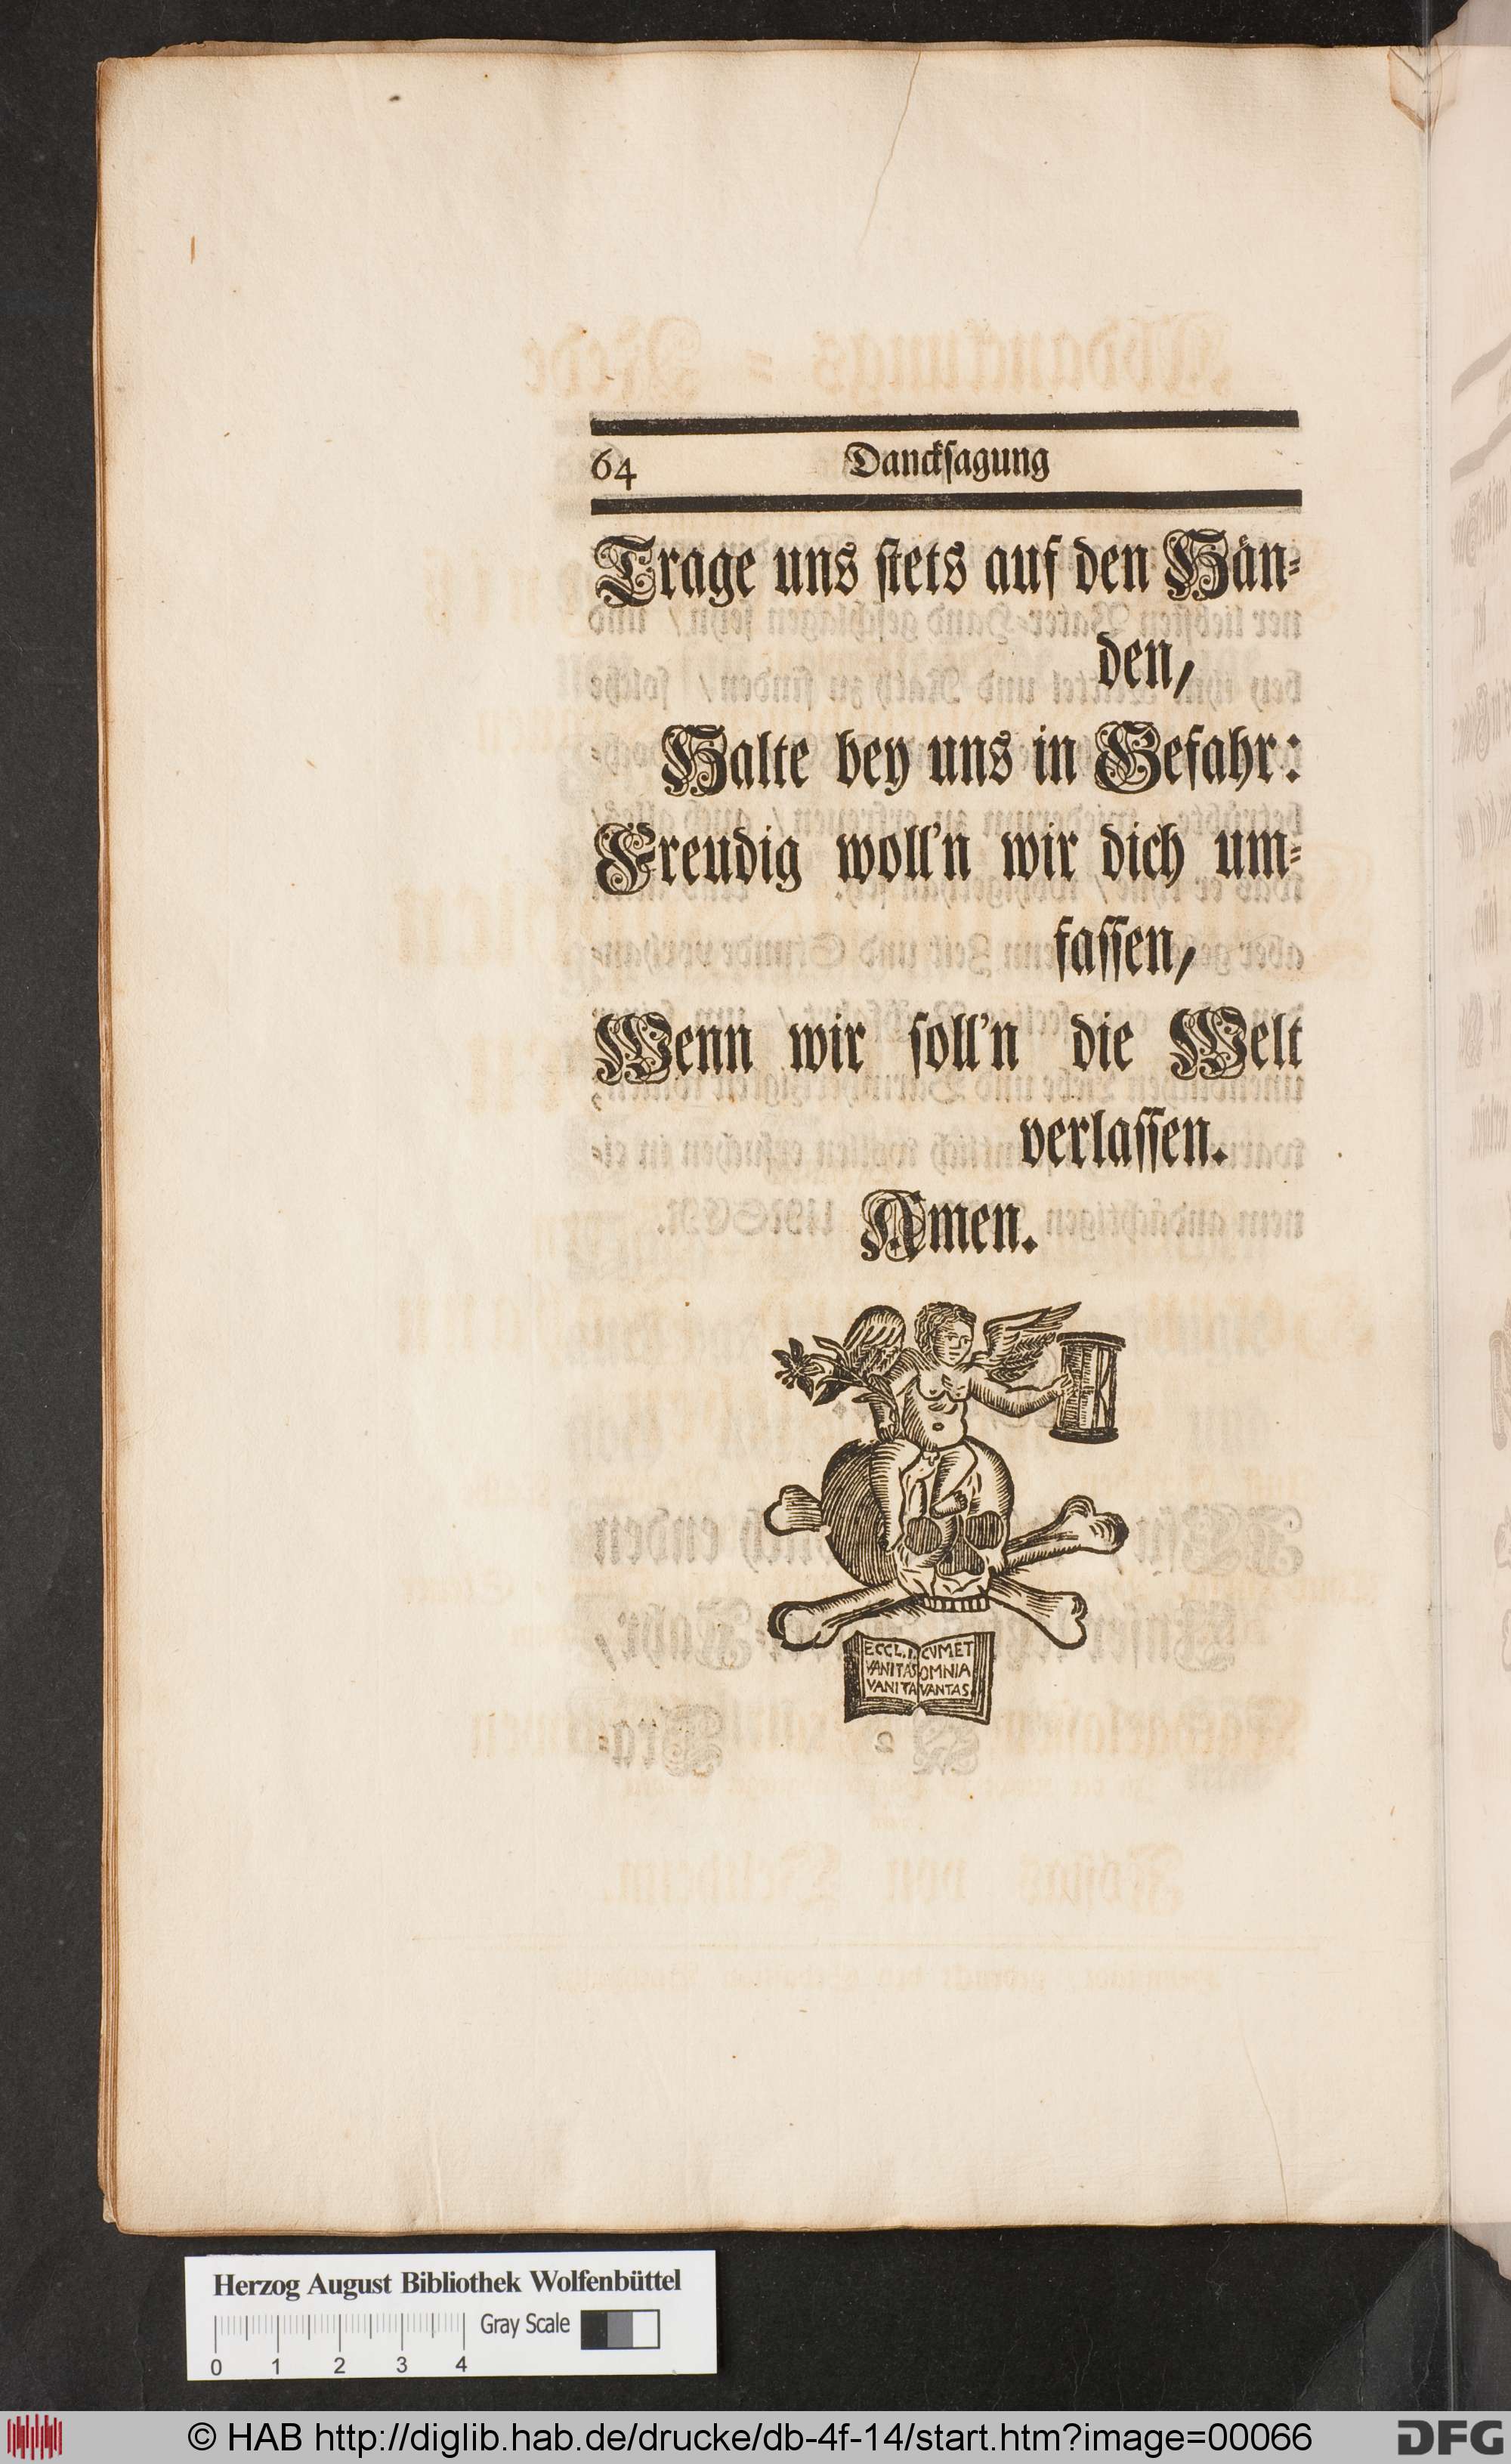 64 Danckſagung
Trage uns ſtets auf den Hän⸗
den/
Halte bey uns in Gefahr:
Freudig woll'n wir dich um⸗
faſſen/
Wenn wir ſoll'n die Welt
verlaſſen.
Amen.
ECCL. I. CVMET
VANITAS OMNIA
VANITA VANTAS
Herzog August Bibliothek Wolfenbüttel
Gray Scale
0 1 2 3 4
© HAB http://diglib.hab.de/drucke/db-4f-14/start.htm?image=00066
DFG